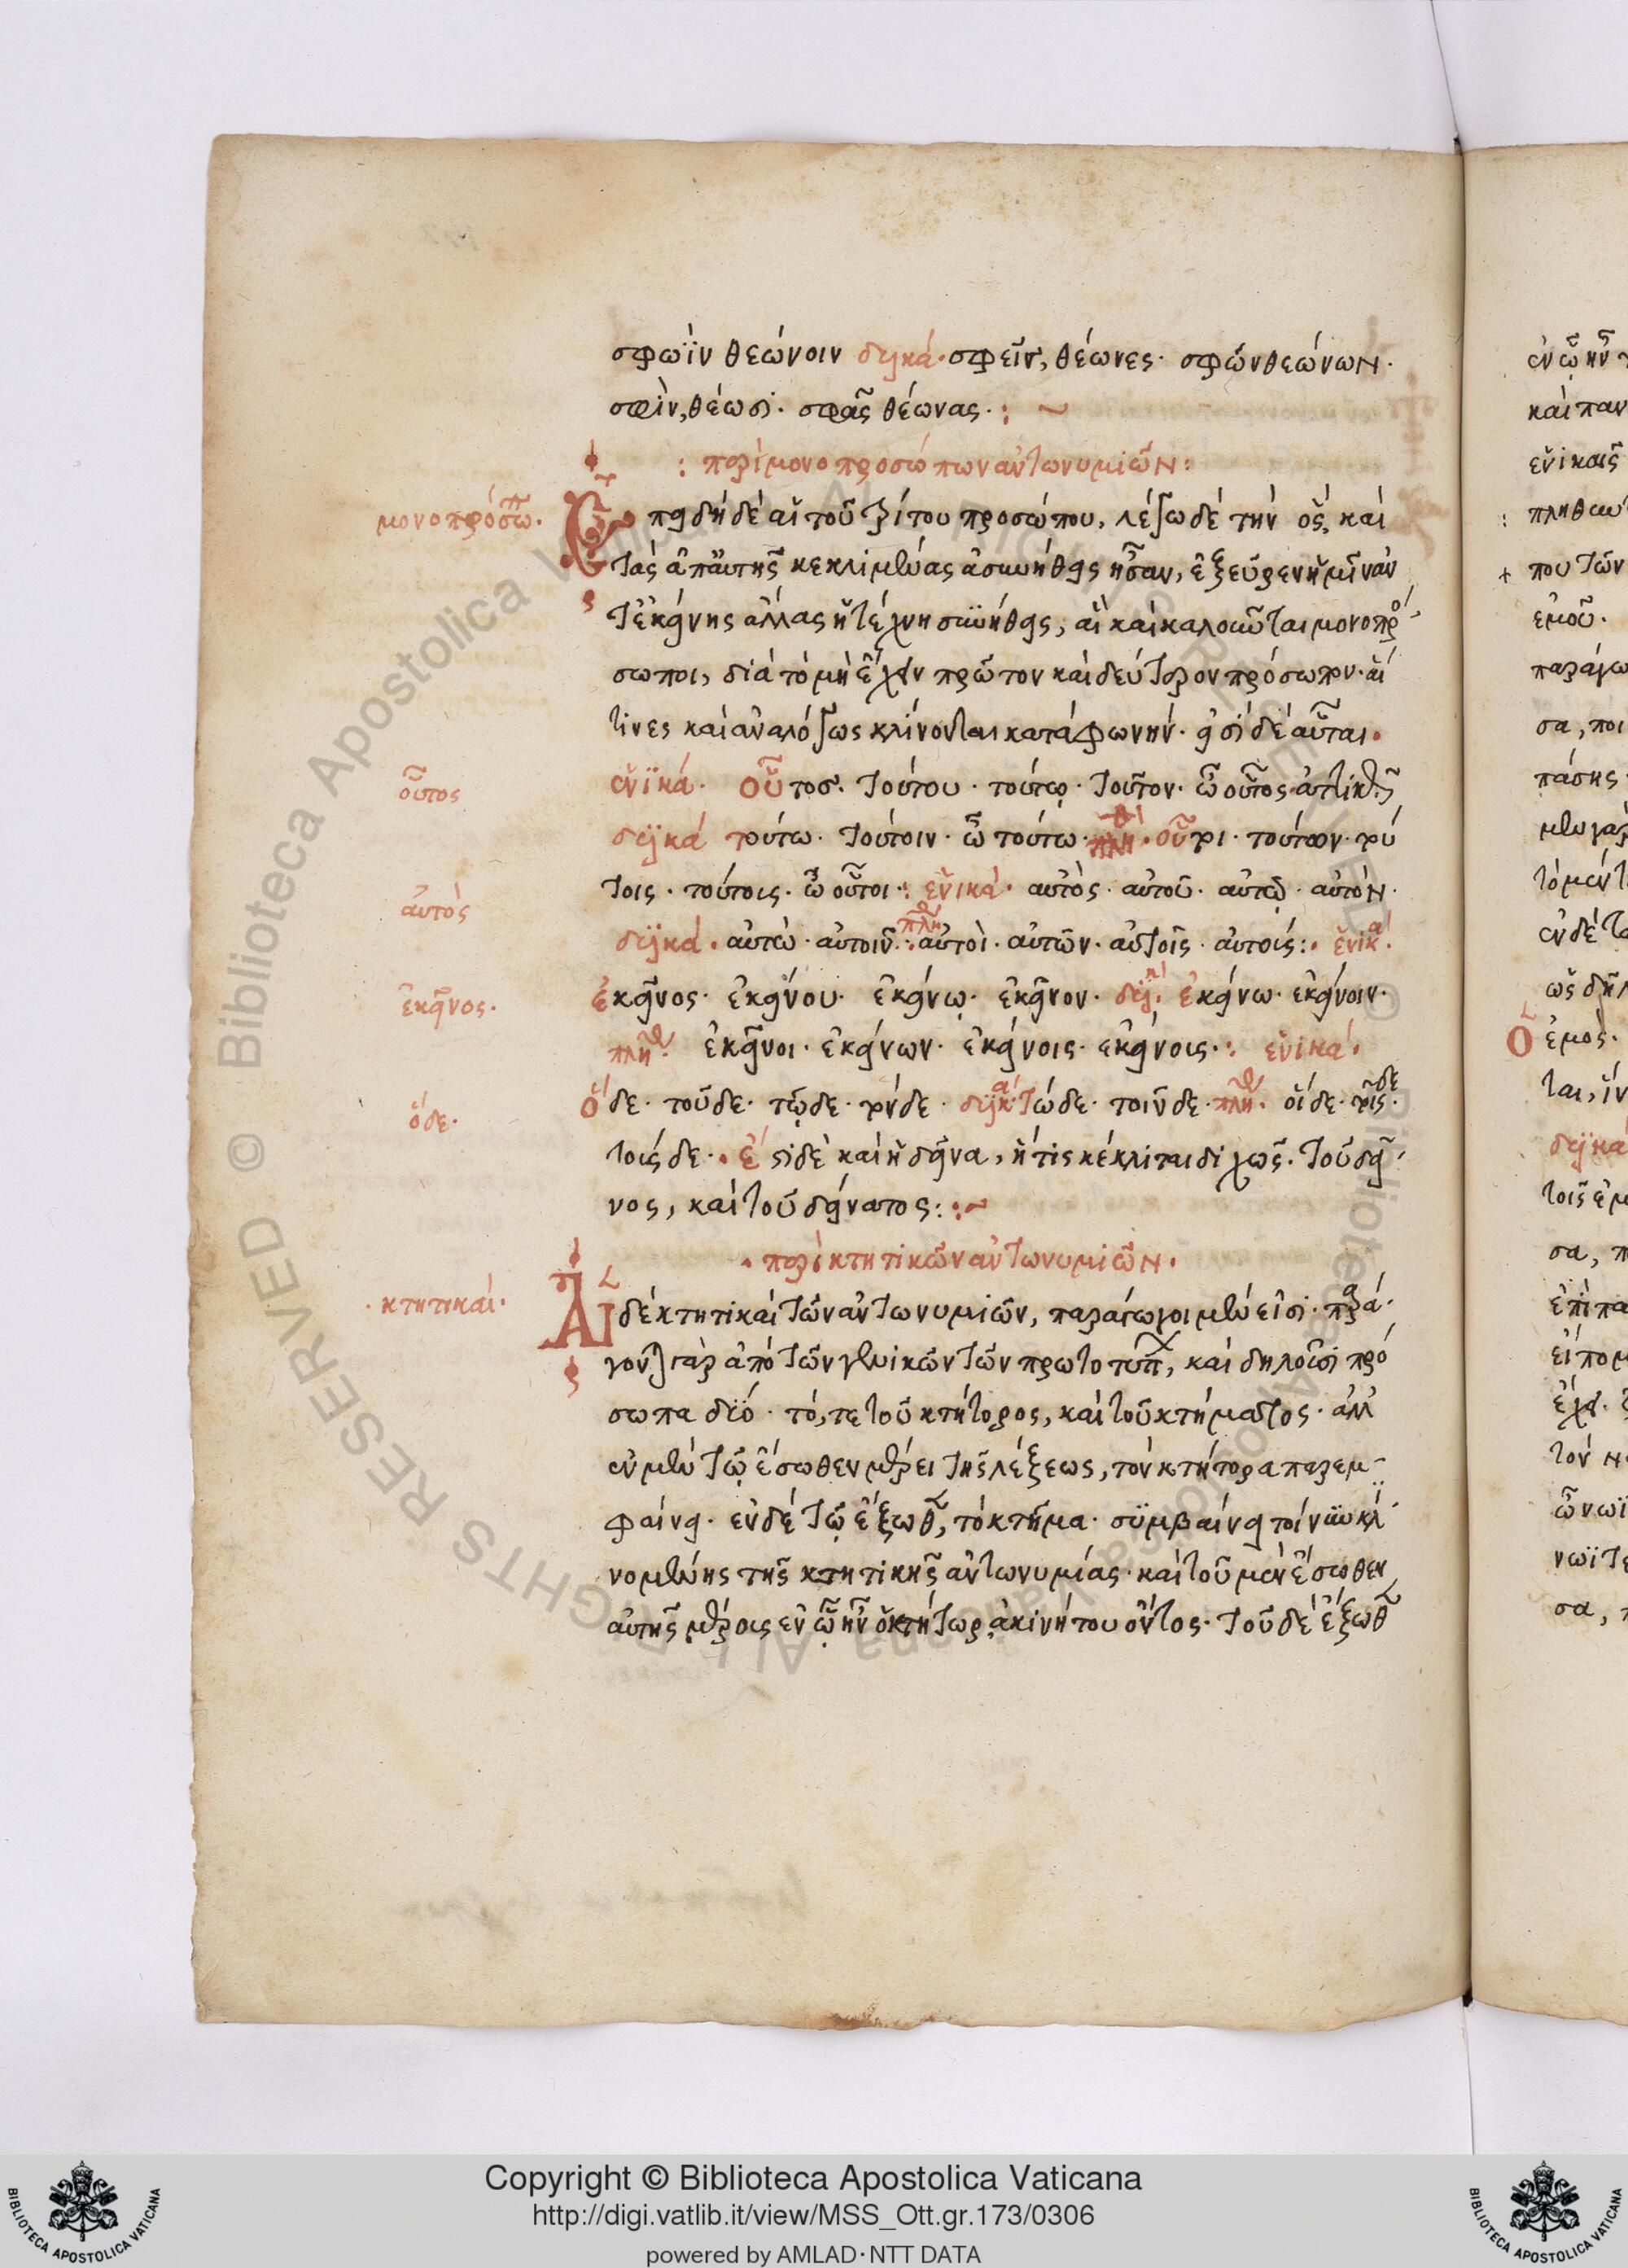 σφωϊν θεώνοιν δυϊκά· σφεῖν, θέωνες· σφῶν θεώνων·
σφὶν, θέωσι· σφᾶς θέωνας· : ~
: περὶ μονοπροσώπων ἀντωνυμιῶν :
μονοπρόσωπ·
Ἐπεὶ δὴ δὲ αἱ τοῦ τρίτου προσώπου, λέγω δὲ τὴν ὅς, καὶ
τὰς ἀπαὐτῆς κεκλιμένας ἀσυνήθεις ἦσαν, ἐξεῦρεν ἡμῖν ἀν
τ' ἐκείνης ἄλλας ἡ τέχνη συνήθεις, αἳ καὶ καλοῦνται μονοπρό-
σωποι, διὰ τὸ μὴ ἔχειν πρῶτον καὶ δεύτερον πρόσωπον· αἵ
τινες καὶ ἀναλόγως κλίνονται κατὰ φωνήν· εἰσὶ δὲ αὗται·
οὗτος
ἑνϊκά· οὗτοσ· τούτου· τούτῳ· τοῦτον· ὦ οὗτος
δυϊκά τούτω· τούτοιν· ὦ τούτω· οὗτοι· τούτων· τού
τοις· τούτοις· ὦ οὗτοι· : ἑνικά· αὐτὸς· αὐτοῦ· αὐτῷ· αὐτόν·
αὐτὸς
δυϊκά· αὐτὼ· αὐτοῖν· : πλη αὐτοὶ· αὐτῶν· αὐτοῖς· αὐτοίς : · ἑνικά·
ἐκεῖνος·
ἐκεῖνος· ἐκείνου· ἐκείνῳ· ἐκεῖνον· δυι· ἐκείνω· ἐκείνοιν·
πλη· ἐκεῖνοι· ἐκείνων· ἐκείνοις· ἐκείνοις· : ἑνικά·
ὅδε·
ὅδε· τοῦδε· τῷδε· τόνδε· δυϊκά· τώδε· τοῖνδε· πλη· οἵδε· τοῖςδε·
τοίςδε· · ἔστι δὲ καὶ ἡ δεῖνα, ἥτις κέκλιται διχῶς· τοῦ δεῖ-
νος, καὶ τοῦ δείνατος : : ~
· περὶ κτητικῶν ἀντωνυμιῶν·
· κτητικαί·
Αἱ δὲ κτητικαὶ τῶν ἀντωνυμιῶν, παράγωγοι μέν εἰσι· παρά-
γονται γὰρ ἀπὸ τῶν γενικῶν τῶν πρωτοτύπ, καὶ δηλοῦσι πρό
σωπα δύο· τό, τε τοῦ κτήτορος, καὶ τοῦ κτήματος· ἀλλ
ἐν μὲν τῷ ἔσωθεν μέρει τῆς λέξεως, τὸν κτήτορα παρεμ-
φαίνει· ἐν δὲ τῷ ἔξωθ, τὸ κτῆμα· συμβαίνει τοίνυν κλι-
νομένης τῆς κτητικῆς ἀντωνυμίας· καὶ τοῦ μὲν ἔσωθεν
αὐτῆς μέρους ἐν ᾧ ἦν ὁ κτήτωρ ἀκινήτου ὄντος· τοῦ δὲ ἔξωθ
Copyright © Biblioteca Apostolica Vaticana
http://digi.vatlib.it/view/MSS_Ott.gr.173/0306
powered by AMLAD·NTT DATA